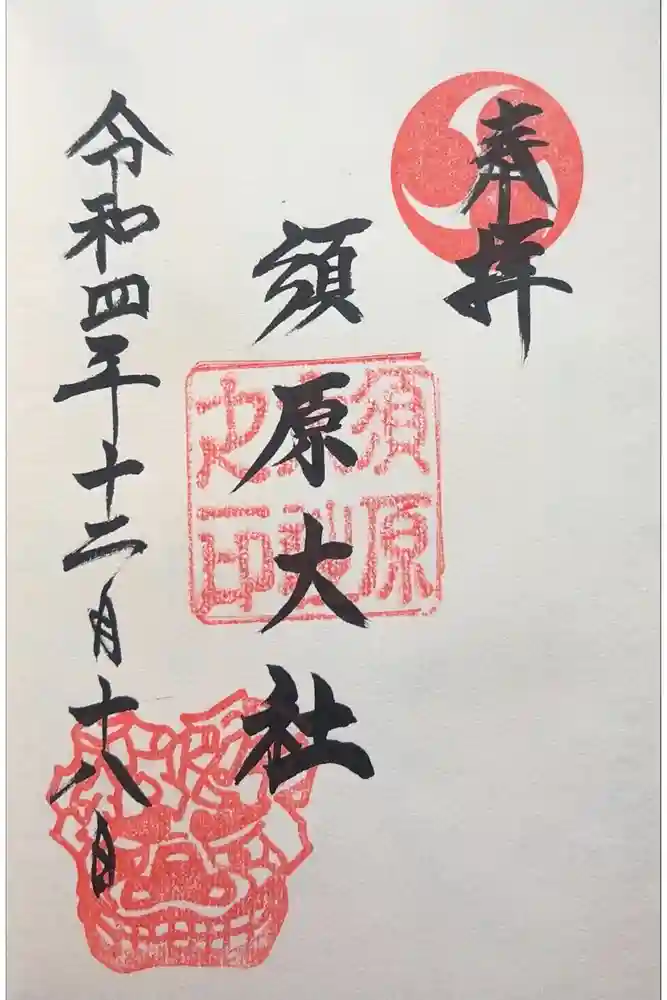 奉拝
須原大社
須原
大社
之印
令和四年十二月十八日